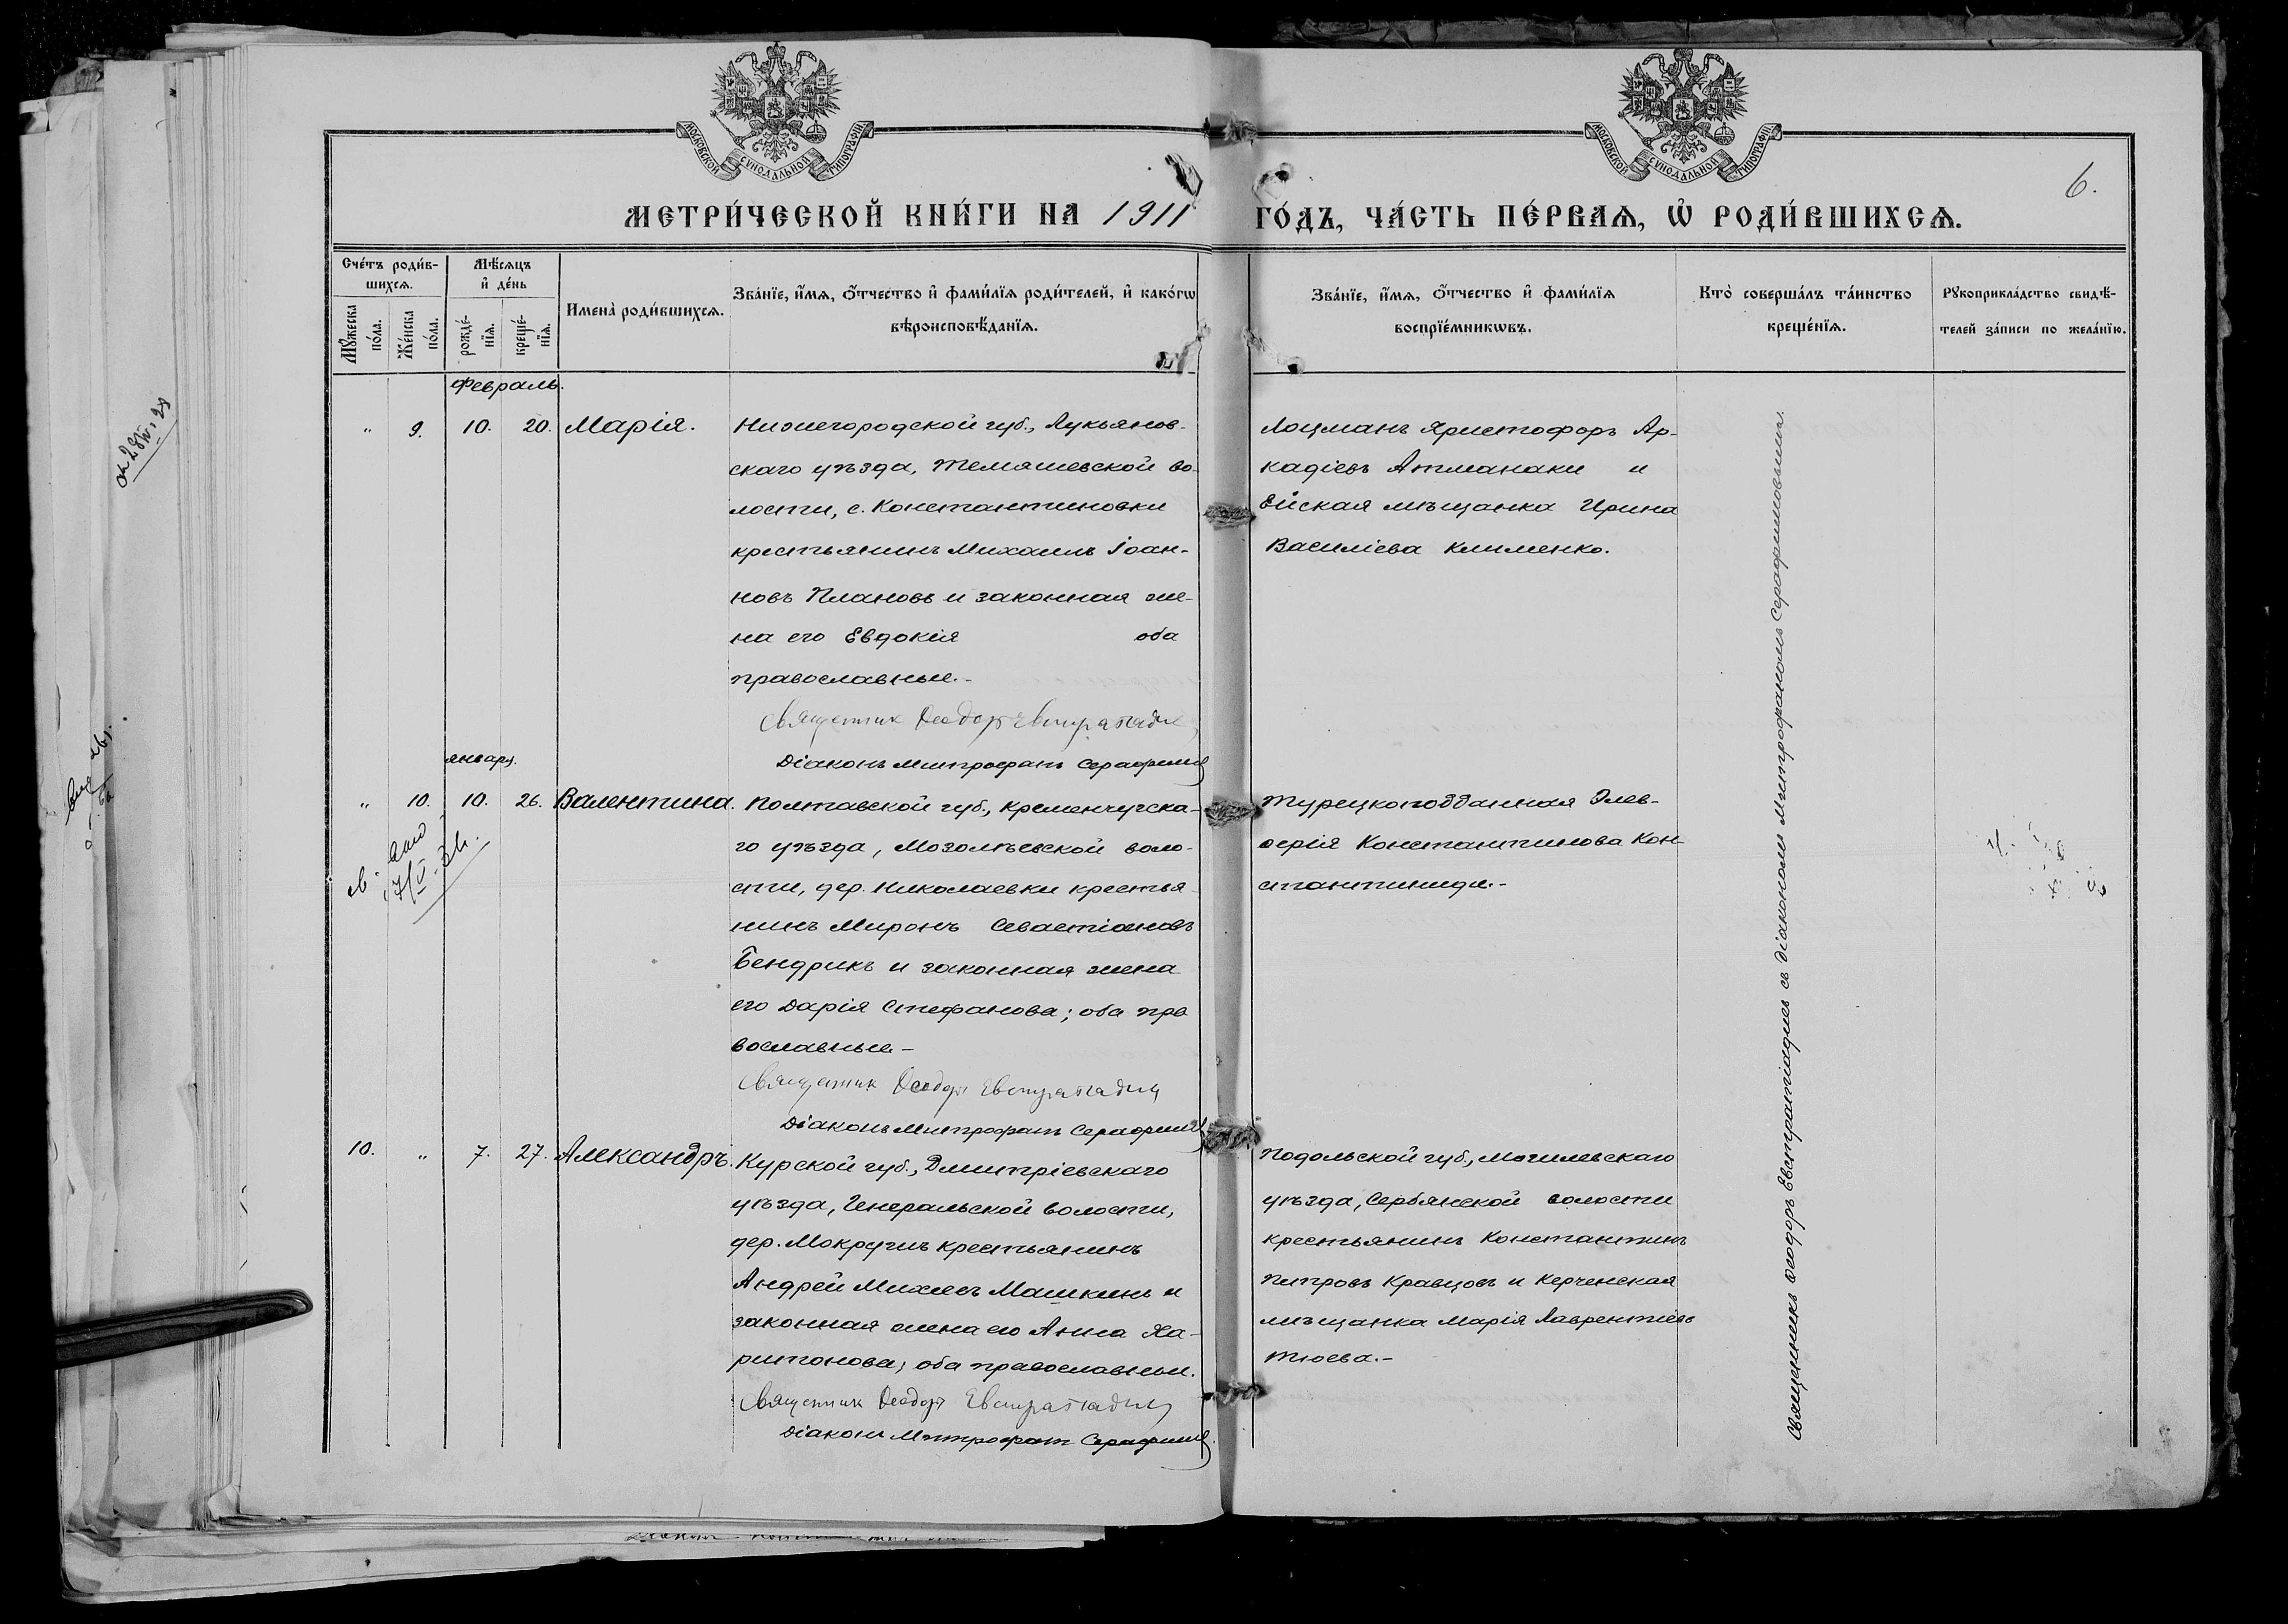 МОСКОВСКОЙ СѴНОДАЛЬНОЙ ТИПОГРАФІИ
МОСКОВСКОЙ СѴНОДАЛЬНОЙ ТИПОГРАФІИ
6.
МЕТРИ́ЧЕСКОЙ КНИ́ГИ НА 1911 ГО́ДЪ, ЧА́СТЬ ПЕ́РВАѦ, Ѡ РОДИ́ВШИХСѦ.
Сче́тъ роди́в-
шихсѧ.
Мꙋ́жеска по́ла.
Же́нска по́ла.
Мѣ́сѧцъ
и де́нь
рожде́-
нїѧ.
креще́-
нїѧ.
Имена̀ роди́вшихсѧ.
Зва́нїе, и́мѧ, ѻ́тчество и фами́лїѧ роди́телей, и како́гѡ
вѣроисповѣ́данїѧ.
Зва́нїе, и́мѧ, ѻ́тчество и фами́лїѧ
воспрїе́мникѡвъ.
Кто̀ соверша́лъ та́инство
креще́нїѧ.
Рꙋкоприкла́дство свидѣ́-
телей за́писи по жела́нїю.
Февраль.
" 9. 10. 20. Марія.
Нижегородской губ., Лукьянов-
скаго уѣзда, Темяшевской во-
лости, с. Константиновки
крестьянинъ Михаилъ Іоан-
новъ Плановъ и законная же-
на его Евдокія оба
православные.-
Священник Ѳеодоръ Евстратиади
Діаконъ Митрофанъ Серафимов
Лоцманъ Христофоръ Ар-
кадіевъ Атманаки и
Ейская мѣщанка Ирина
Василіева Клименко.
январь.
" 10. 10. 26. Валентина.
Полтавской губ., Кременчугска-
го уѣзда, Мозолѣевской воло-
сти, дер. Николаевки крестья-
нинъ Миронъ Севастіановъ
Бендрикъ и законная жена
его Дарія Стефанова; оба пра
вославные.-
Священник Ѳеодоръ Евстратиади
Діаконъ Митрофанъ Серафимов
Турецкоподданная Элев-
ѳерія Константинова Кон-
стантиниди.-
10. " 7. 27. Александръ.
Курской губ., Дмитріевскаго
уѣзда, Генеральской волости,
дер. Мокрушъ крестьянинъ
Андрей Михеевъ Машкинъ и
законная жена его Анна Ха-
ритонова; оба православные.
Священник Ѳеодоръ Евстратиади
Діаконъ Митрофанъ Серафимов
Подольской губ., Могилевскаго
уѣзда, Сербянской волости
крестьянинъ Константинъ
Петровъ Кравцовъ и Керченская
мѣщанка Марія Лаврентіева
Тюева.-
Священникъ Ѳеодоръ Евстратіадисъ съ діакономъ Митрофаномъ Серафимовымъ.